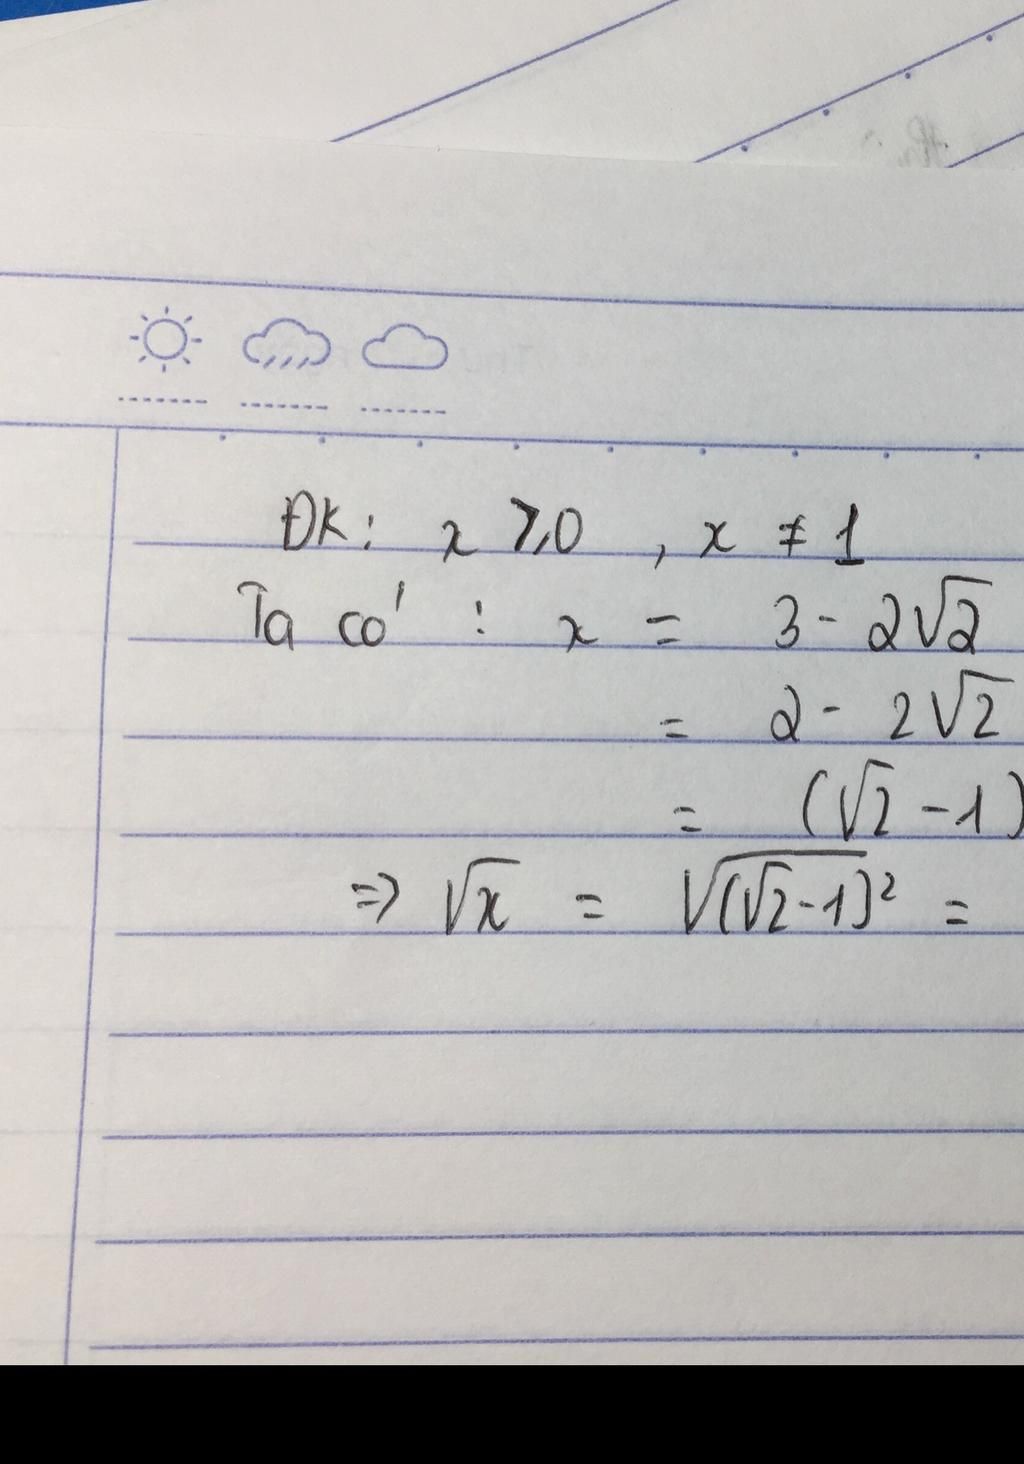 ĐK: x ≥ 0 , x ≠ 1
Ta có : x = 3 - 2√2
= 2 - 2√2
= (√2 - 1)
=> √x = √(√2-1)² =